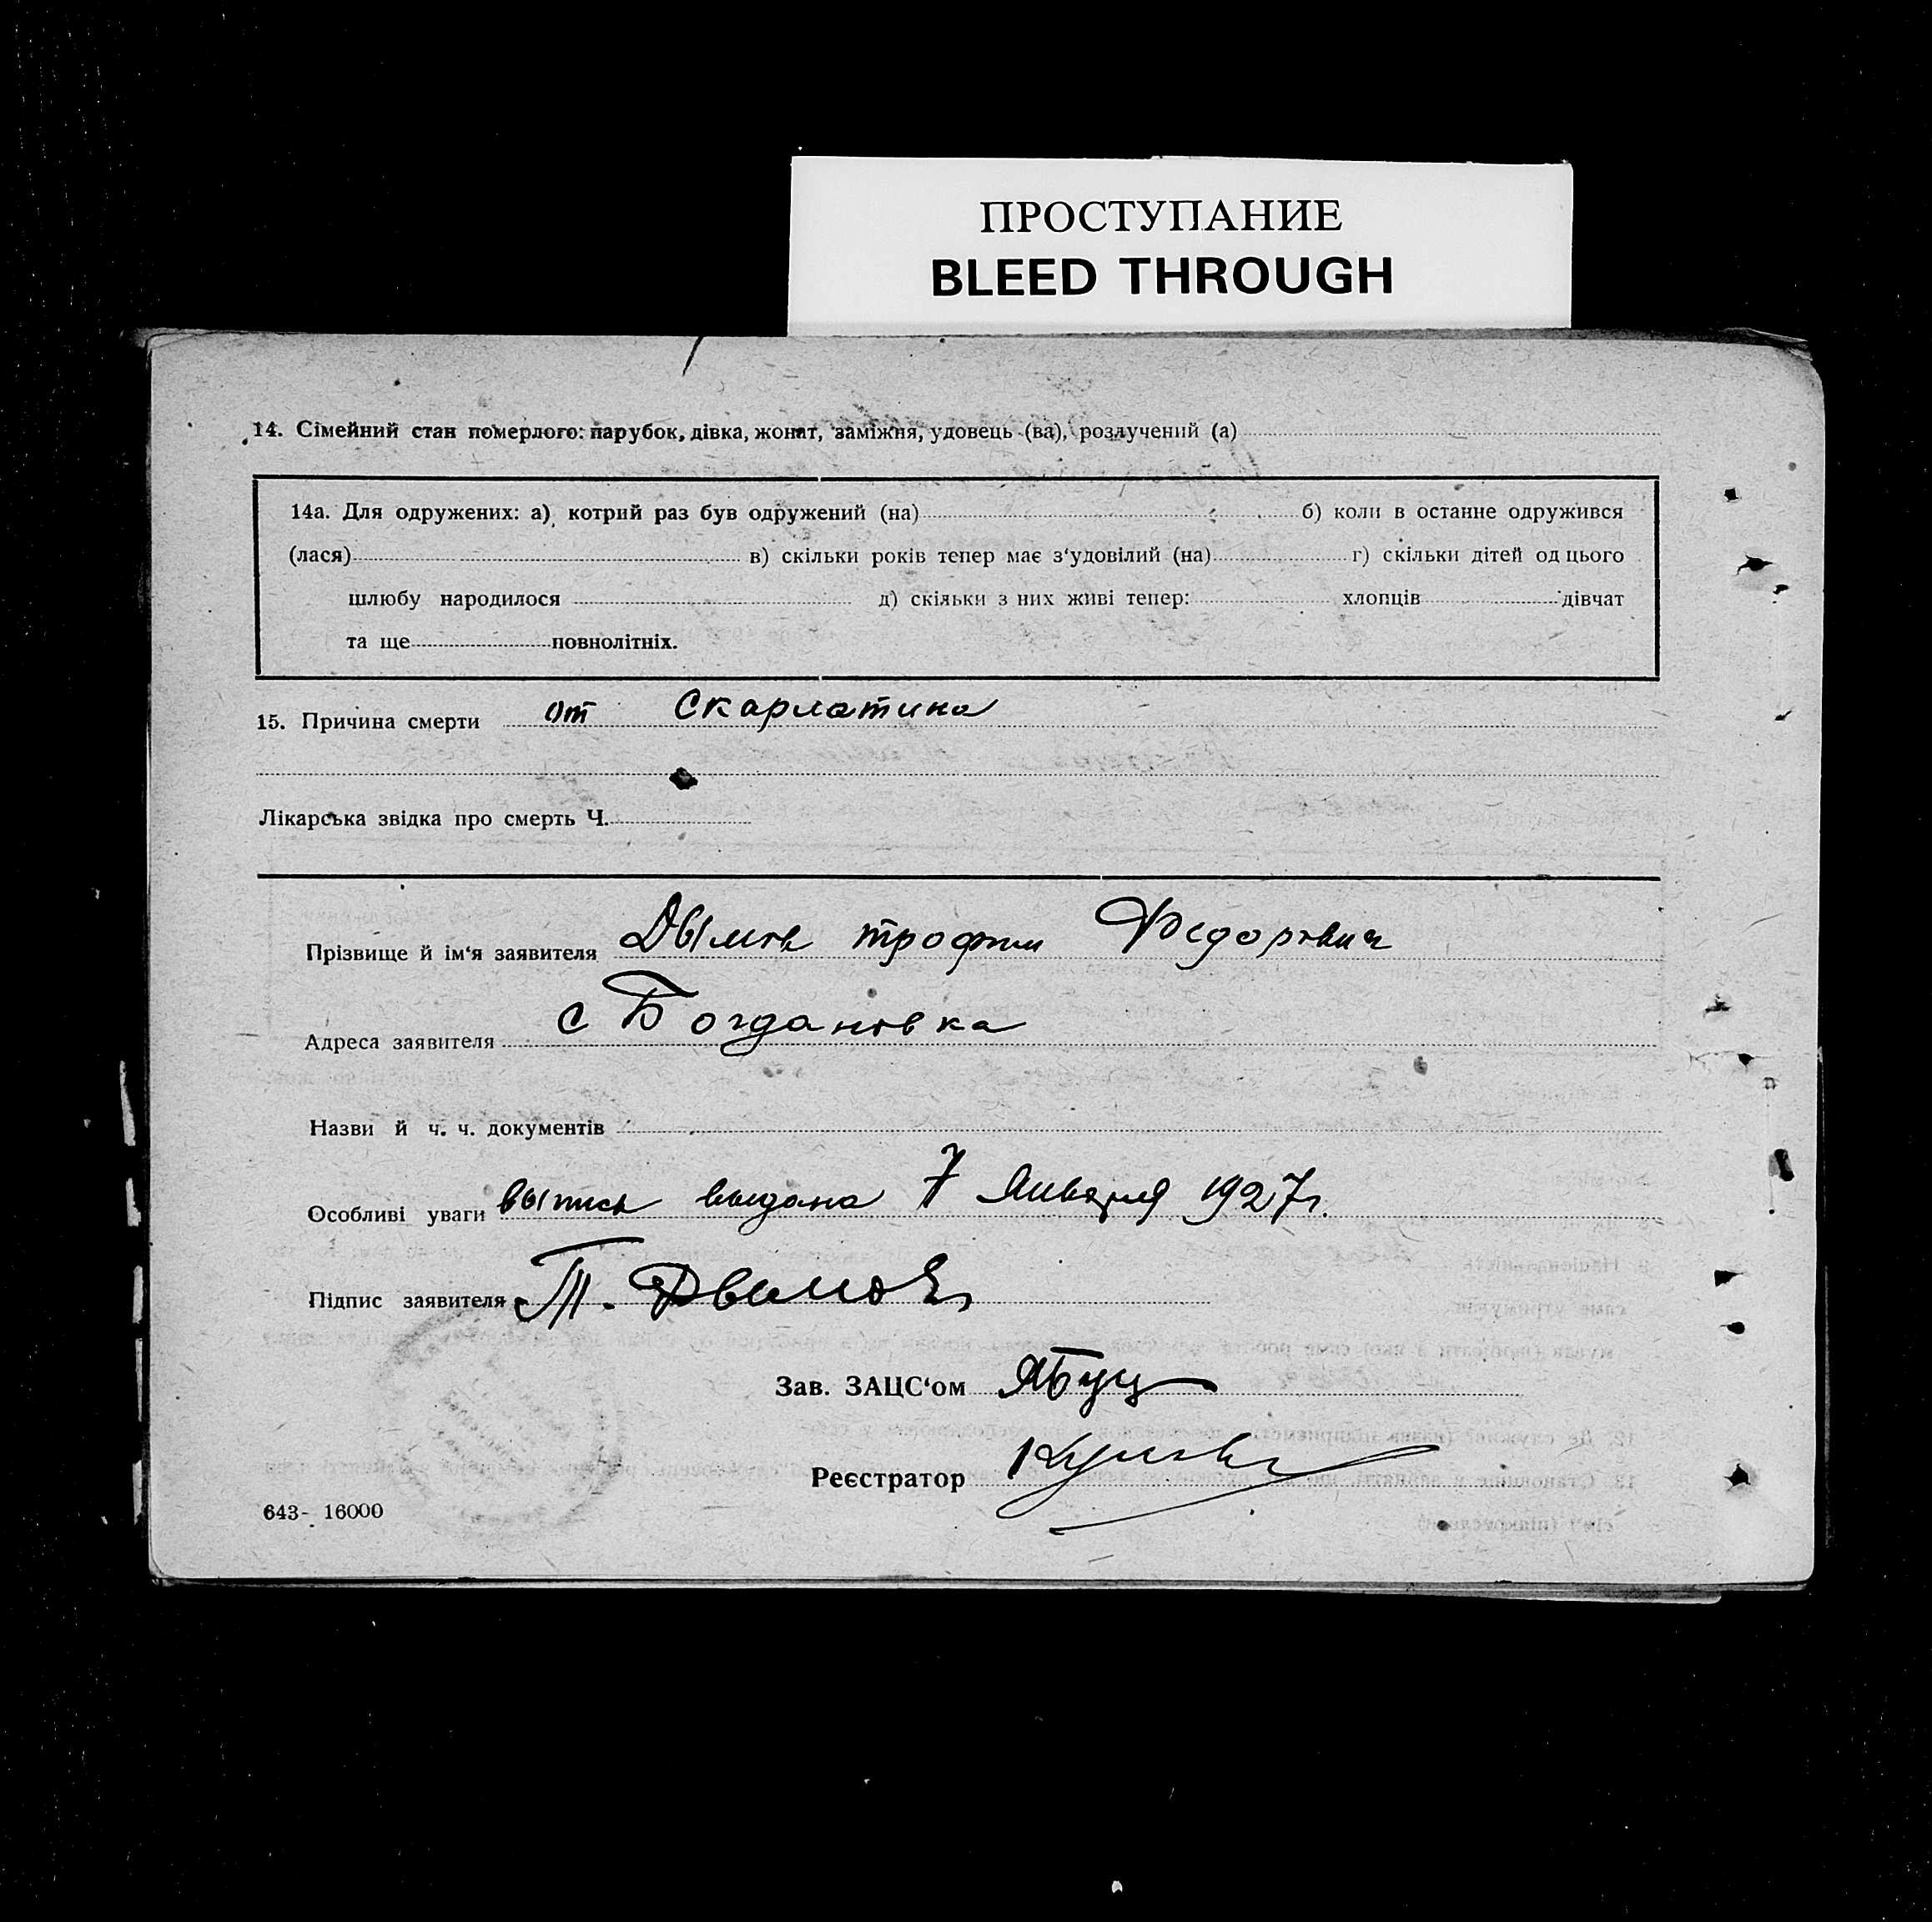 ПРОСТУПАНИЕ
BLEED THROUGH
14. Сімейний стан померлого: парубок, дівка, жонат, заміжня, удовець (ва), розлучений (а)
14а. Для одружених: а) котрий раз був одружений (на) б) коли в останне одружився
(лася) в) скільки років тепер має з'удовілий (на) г) скільки дітей од цього
шлюбу народилося д) скільки з них живі тепер: хлопців дівчат
та ще повнолітніх.
15. Причина смерти от Скарлатина
Лікарська звідка про смерть Ч.
Прізвище й ім'я заявителя Дымов трофим Федорович
Адреса заявителя с Богдановка
Назви й ч. ч. документів
Особливі уваги выпись выдана 7 Января 1927г.
Підпис заявителя Т. Дымов
Зав. ЗАЦС'ом
Реєстратор
643- 16000